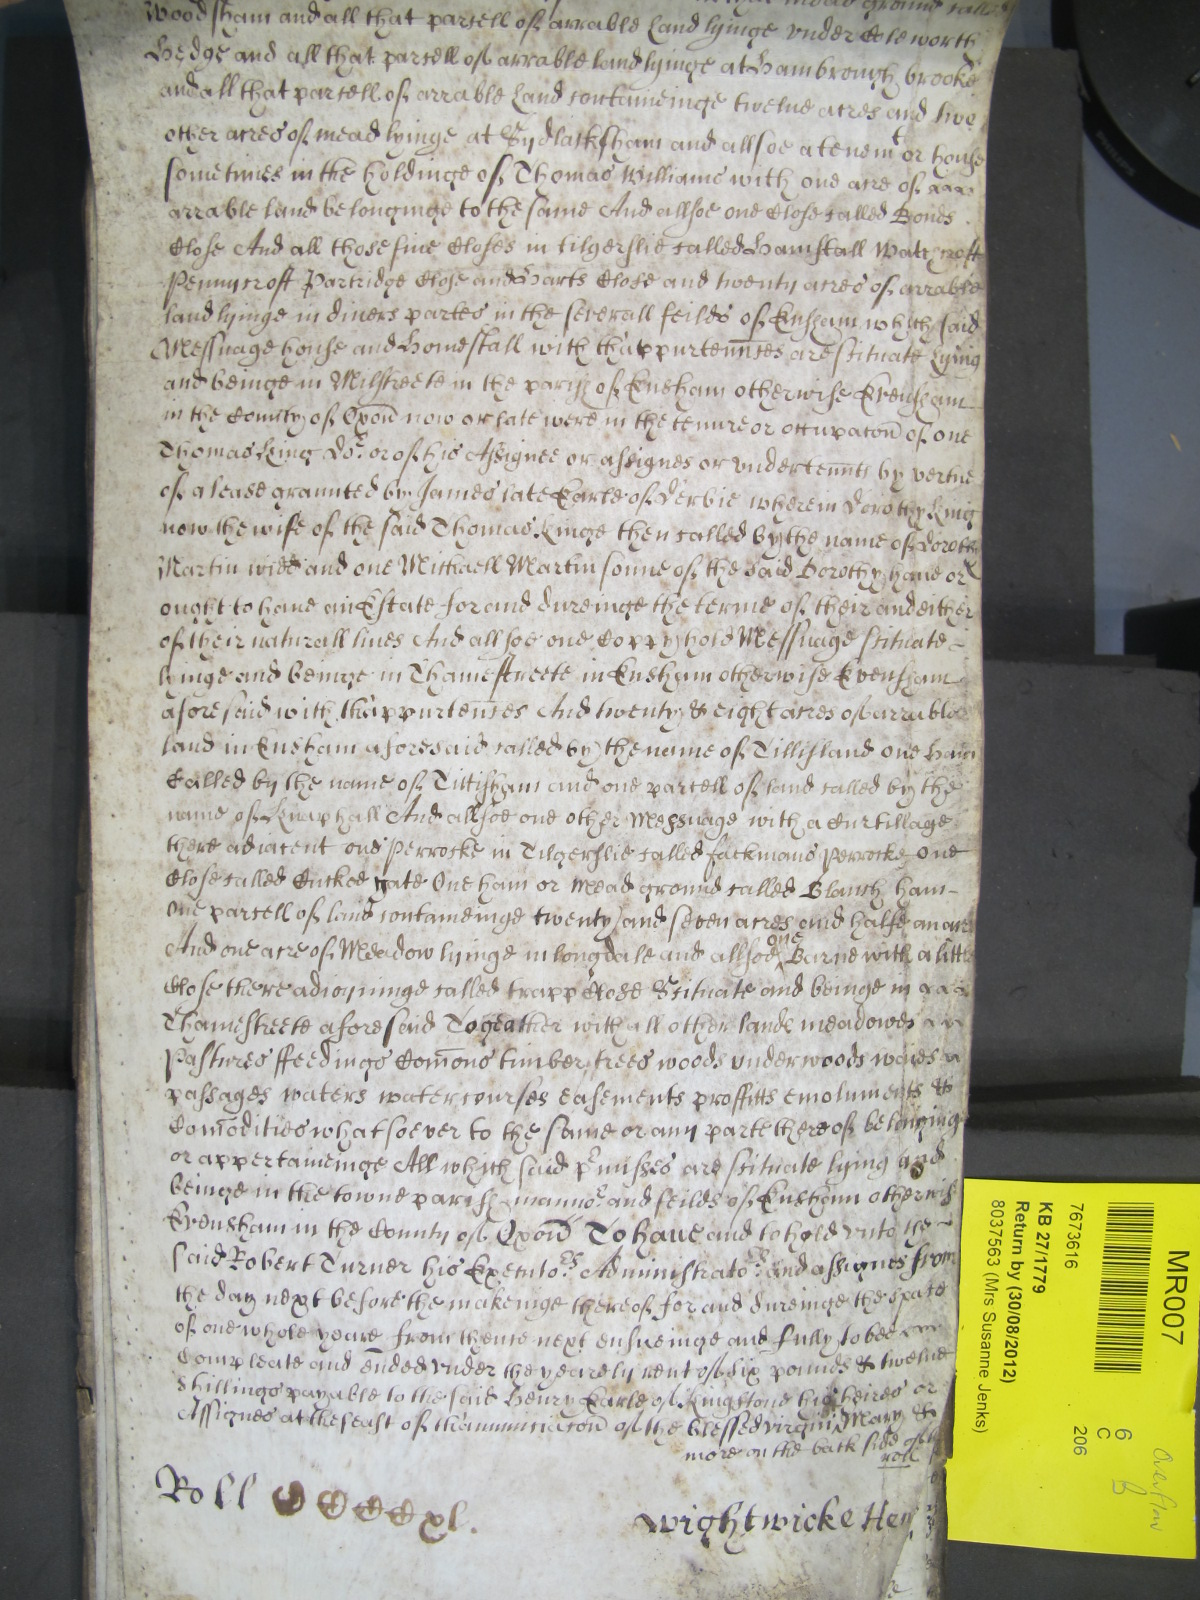 Woodsham and all that parcell of arrable land lyinge vnder Coleworth
Hedge and all that parcell of arrable land lyinge at Hambrough brooke
and all that parcell of arrable land contaieninge twelue acres and two
other acres of mead lyinge at Bydlacksham and allsoe a tenemt or house
sometimes in the holdinge of Thomas Williams with one acre of
arrable land belonginge to the same And allsoe one Close called Bonds
Close And all those fiue Closes in tilgerslie called Hamstall Wattcroft
Pennycroft Partridge Close and Harts Close and twenty acres of arrable
land lyinge in diuers partes in the severall feilds of Ensham which said
Messuage house and Homestall with thappurtennces are scituate lying
and beinge in Milstreete in the parish of Ensham otherwise Evensham
in the County of Oxon now or late were in the tenure or occupacon of one
Thomas King Dor or of his Assignee or assignes or vndertennts by vertue
of a lease graunted by James late Earle of Derbie wherein Dorothy King
now the wife of the said Thomas Kinge then called by the name of Dorothy
Martin widd and one Michaell Martin sonne of the said Dorothy haue or
ought to haue an Estate for and dureinge the terme of their and either
of their naturall liues And allsoe one Coppyhold Messuage scituate
lyinge and beinge in Thamestreete in Ensham otherwise Evensham
aforesaid with thappurtennces And twenty & eight acres of arrable
land in Ensham aforesaid called by the name of Tillisland one Ham
Called by the name of Tittisham and one parcell of land called by the
name of Knaphall And allsoe one other Messuage with a Curtillage
there adiacent one Perrocke in Tilgerslie called Jackmans Perrocke one
Close called Cuckoe gate One ham or Mead ground called Blanch ham
One parcell of land contameinge twenty and seven acres and halfe an acre
And one acre of Meadow lyinge in longdale and allsoe one Barne with a little
Close there adioyninge called trapp Close Scituate and beinge in
Thamestreete aforesaid Togeather with all other lands meadowes
Pastures ffeedings Comons timber trees woods vnderwoods waies
passages waters watercourses easements proffitts emoluments &
Comodities whatsoever to the same or any parte thereof belonginge
or appertaineinge All which said pmisses are scituate lying and
beinge in the towne parish mannor and feilds of Ensham otherwise
Evensham in the County of Oxon To haue and to hold vnto the
said Robert Turner his Executors Administrators and assignes from
the day next before the makeinge thereof for and dureinge the space
of one whole yeare from thence next ensueinge and fully to bee
Compleate and ended vnder the yearely rent of six pounds & twelue
shillings payable to the said Henry Earle of Kingstone his heires or
Assignes at the feast of thannunciacon of the blessed virgin Mary &
more on the back side of this
roll
Roll CCCCCxl.
Wightwicke Hen
MR007
7673616
KB 27/1779
Return by (30/08/2012)
8037563 (Mrs Susanne Jenks)
6
C
206
Overflow
B